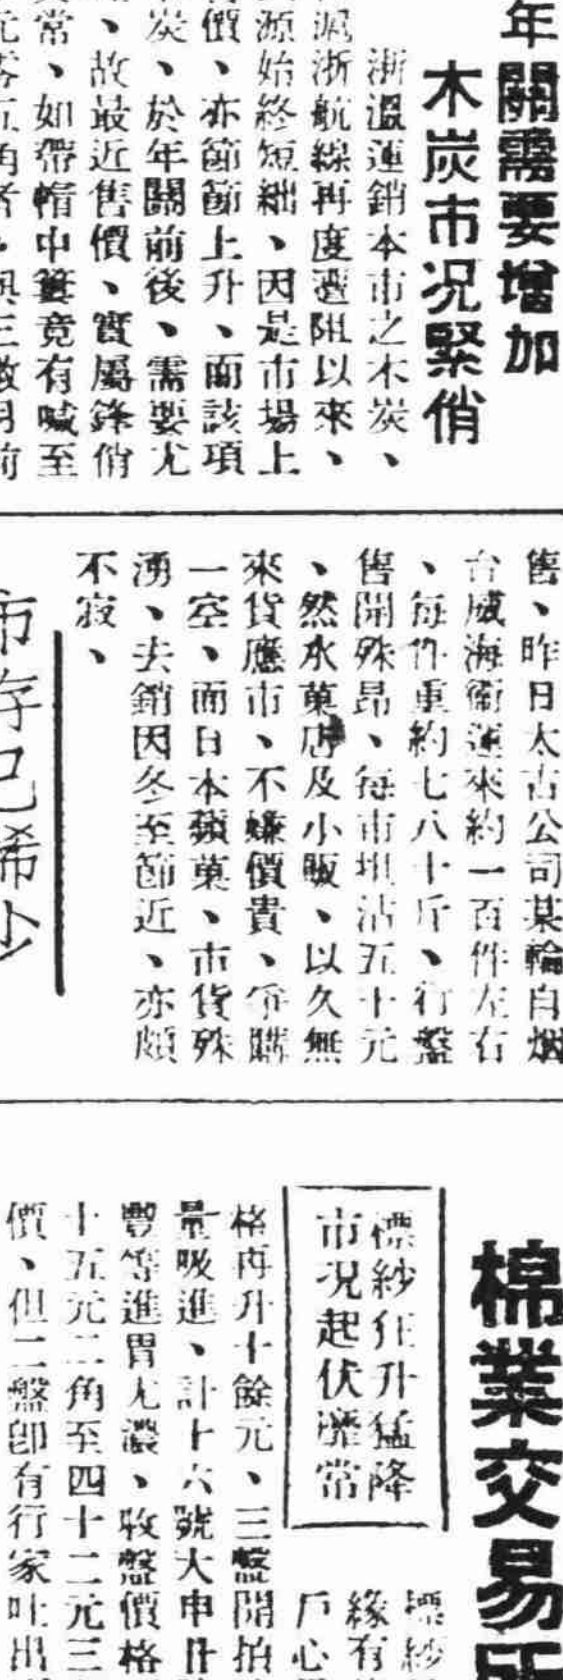 年關需要增加
木炭市况緊俏
浙溫運銷本市之木炭、
浙航線再度遭阻以來、
源始終短絀、因是市場上
價、亦節節上升、而該項
炭、於年關前後、需要尤
、故最近售價、實屬鋒俏
常、如帶帽中簍竟有喊至
五角者、
售、昨日太古公司某輪自烟
台威海衞運來約一百件左右
、每件重約七八十斤、行盤
售開殊昂、每市担沽五十元
、然水菓店及小販、以久無
來貨應市、不嫌價貴、爭購
一空、而日本蘋菓、市貨殊
湧、去銷因冬至節近、亦頗
不寂、
市存已稀少
棉業交易所
標紗狂升猛降
市况起伏靡常
標紗
緣有
戶心
格再升十餘元、三盤開拍
量吸進、計十六號大申
豐等進胃尤濃、收盤價格
十五元二角至四十二元三
價、但二盤卽有行家吐出